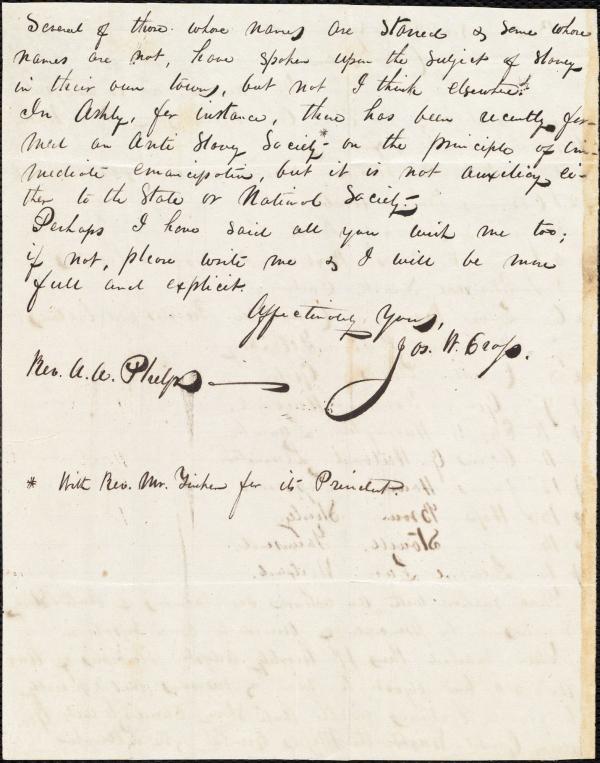 Several of those whose names are starred & some whose
names are not, have spoken upon the subject of Slavery
in their own towns, but not I think elsewhere.
In Ashby, for instance, there has been recently for-
med an Anti Slavy Society* on the principle of im-
mediate emancipation, but it is not auxiliary ei-
ther to the State or National Society.
Perhaps I have said all you wish me too;
if not, please write me & I will be more
full and explicit.
Affectionately Yours,
Jos. W. Cross.
Rev. A. A. Phelps
* With Rev. Mr. for its President.